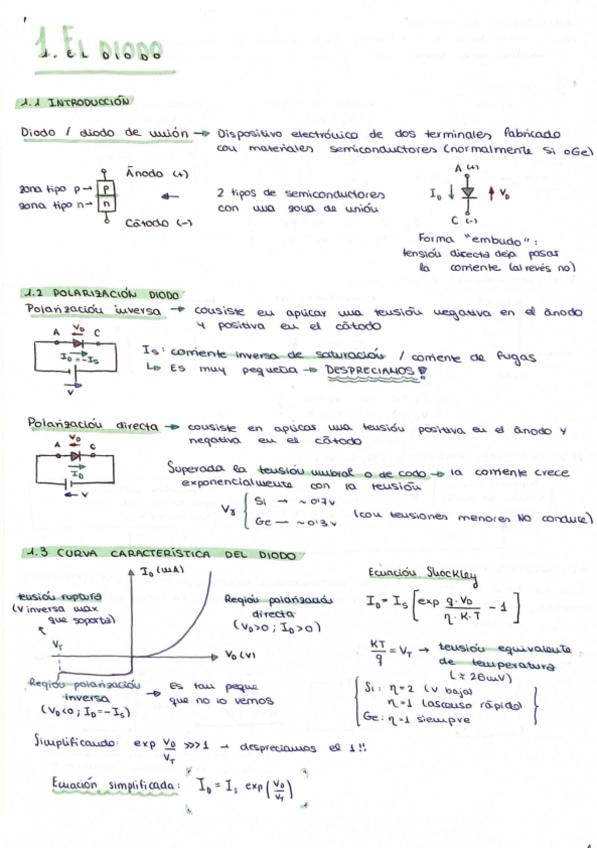 1. EL DIODO
1.1 INTRODUCCIÓN
Diodo / diodo de unión → Dispositivo electrónico de dos terminales fabricado
con materiales semiconductores (normalmente Si o Ge)
Ánodo (+)
zona tipo p → p
zona tipo n → n
Cátodo (-)
← 2 tipos de semiconductores
con una zona de unión
A (+)
I_D ↓ ↑ V_D
C (-)
Forma "embudo":
tensión directa deja pasar
la corriente (al revés no)
1.2 POLARIZACIÓN DIODO
Polarización inversa → consiste en aplicar una tensión negativa en el ánodo
y positiva en el cátodo
A V_D C
I_D = -I_S
V
I_S: corriente inversa de saturación / corriente de fugas
↳ Es muy pequeña → DESPRECIAMOS!
Polarización directa → consiste en aplicar una tensión positiva en el ánodo y
negativa en el cátodo
A V_D C
I_D
← V
Superada la tensión umbral o de codo → la corriente crece
exponencialmente con la tensión
V_γ { Si → ~ 0'7V
Ge — ~ 0'3V
(con tensiones menores NO conduce)
1.3 CURVA CARACTERÍSTICA DEL DIODO
I_D (mA)
tensión ruptura
(V inversa max
que soporta)
V_r
Región polarización
directa
(V_D>0; I_D>0)
V_D (V)
Región polarización
inversa
(V_D<0; I_D=-I_S)
→ Es tan peque
que no lo vemos
Ecuación Shockley
I_D = I_S [exp q·V_D / η·K·T - 1]
KT/q = V_T → tensión equivalente
de temperatura
(≈ 26mV)
Si: η=2 (V baja)
η=1 (ascenso rápido)
Ge: η=1 siempre
Simplificando: exp V_D/V_T >>>1 → despreciamos el 1!!
Ecuación simplificada: I_D = I_S exp(V_D/V_T)